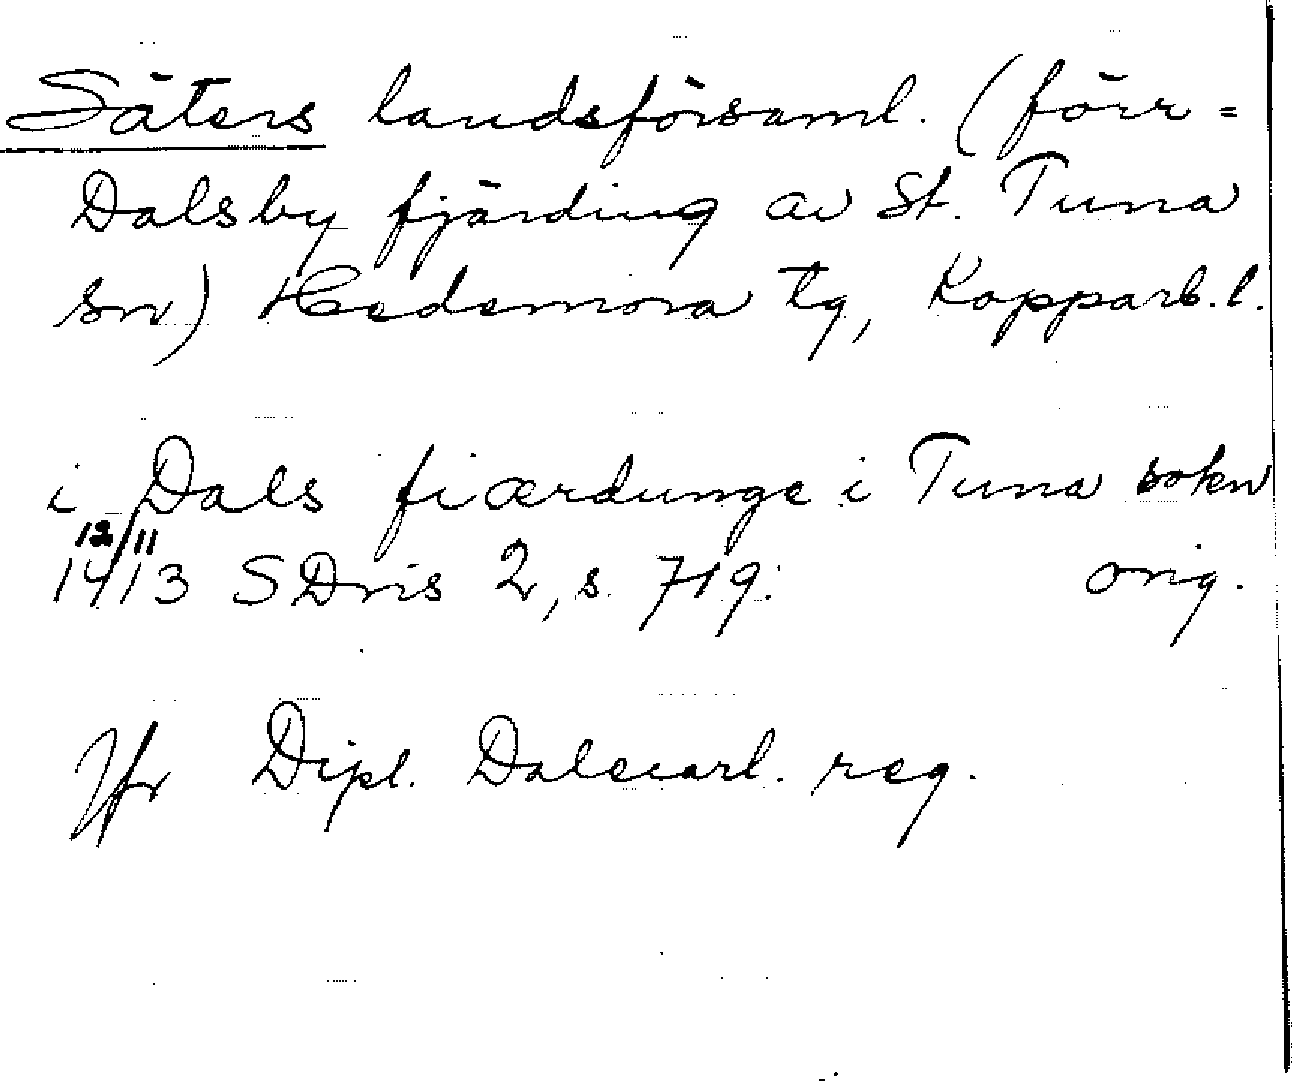 Säters landsförsaml. (förr =
Dalsby fjärding av St. Tuna
sn) Hedemora tg, Kopparb. l.
i Dals fiærdunge i Tuna sokn
12/11
1413 SDns 2, s. 719. orig.
Jfr Dipl. Dalecarl. reg.